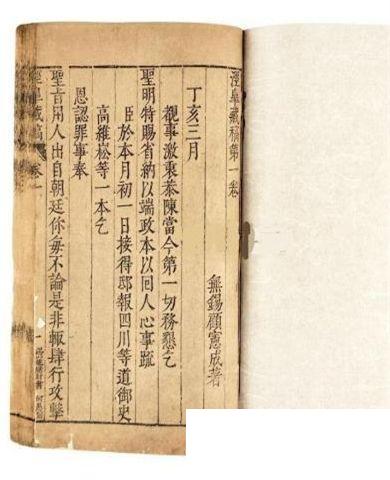 涇臯藏稿第一卷
無錫顧憲成著
丁亥三月
覩事激衷恭陳當今第一切務懇乞
聖明特賜省納以端政本以回人心事疏
臣於本月初一日接得邸報四川等道御史
高維崧等一本乞
恩認罪事奉
聖旨用人出自朝廷你每不論是非輒肆行攻擊
涇臯藏稿 卷一
一